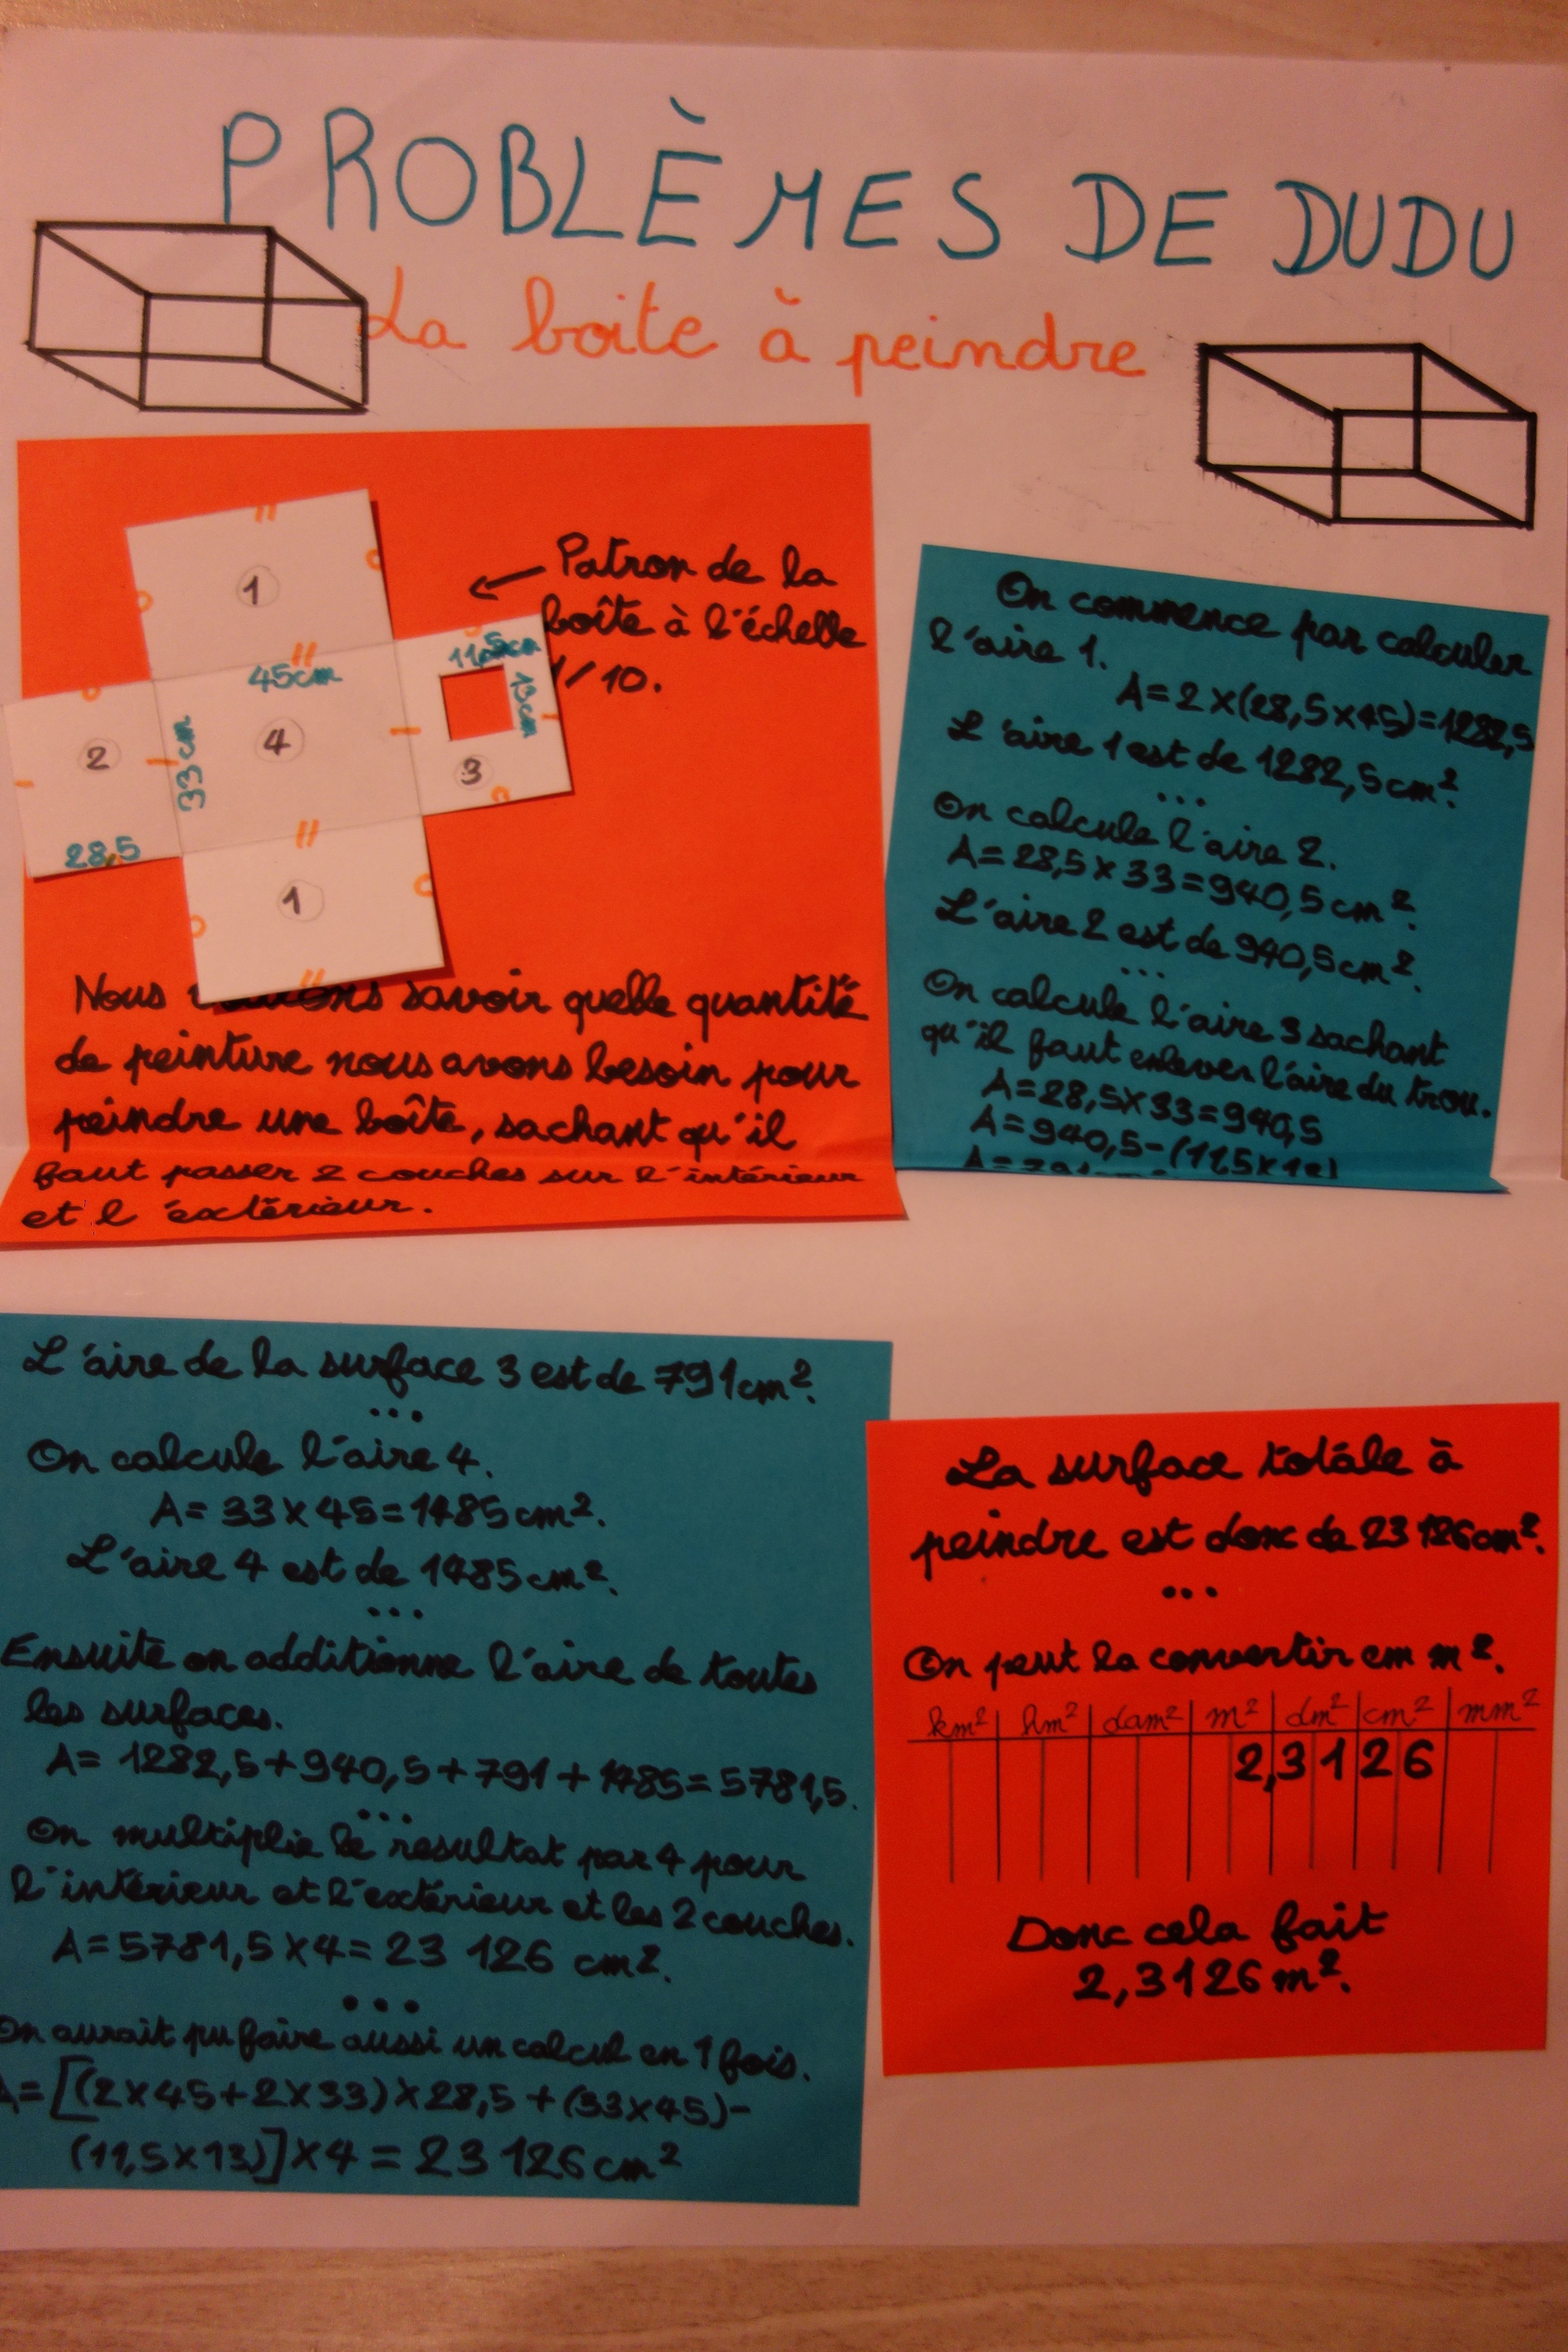 PROBLÈMES DE DUDU
La boite à peindre
Patron de la
boîte à l'échelle
1/10.
1
45cm
11,5cm
13cm
2
33cm
4
3
28,5
1
Nous savoir quelle quantité
de peinture nous avons besoin pour
peindre une boîte, sachant qu'il
faut passer 2 couches sur l'intérieur
et l'éxtérieur.
On commence par calculer
l'aire 1.
A=2×(28,5×45)=1282,5
L'aire 1 est de 1282,5cm².
...
On calcule l'aire 2.
A=28,5×33=940,5cm².
L'aire 2 est de 940,5cm².
...
On calcule l'aire 3 sachant
qu'il faut enlever l'aire du trou.
A=28,5×33=940,5
A=940,5-(11,5×13)
L'aire de la surface 3 est de 791cm².
...
On calcule l'aire 4.
A=33×45=1485cm².
L'aire 4 est de 1485cm².
...
Ensuite on additionne l'aire de toutes
les surfaces.
A= 1282,5+940,5+791+1485=5781,5.
...
On multiplie le résultat par 4 pour
l'intérieur et l'extérieur et les 2 couches.
A=5781,5×4=23 126 cm².
...
On aurait pu faire aussi un calcul en 1 fois.
A=[(2×45+2×33)×28,5+(33×45)-
(11,5×13)]×4=23 126cm²
La surface totale à
peindre est donc de 23 126cm².
...
On peut la convertir em m².
km² hm² dam² m² dm² cm² mm²
2,3126
Donc cela fait
2,3126m².